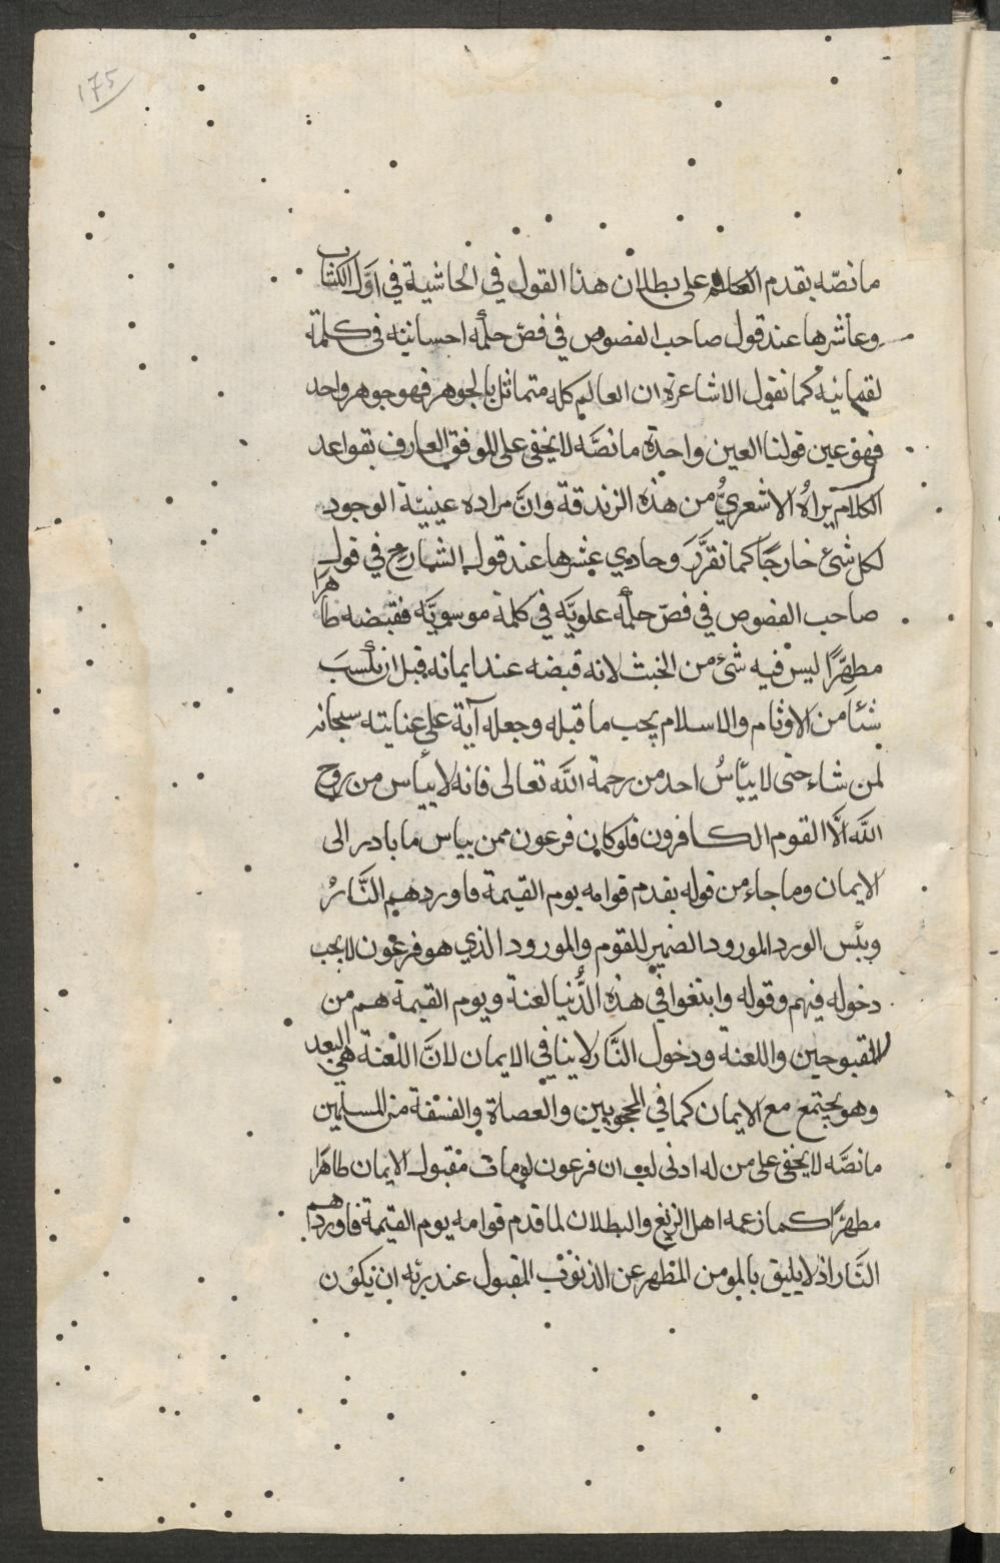 175
ما نصّه تقدم الكلام على بطلان هذا القول في الحاشية في اوّل الكتاب
وعاشرها عند قول صاحب الفصوص في فصّ حكمة احسانية في كلمة
لقمانية كما تقول الاشاعرة ان العالم كله متماثل بالجوهر فهو جوهر واحد
فهو عين قولنا العين واحدة ما نصّه لا يخفى على الموفق العارف بقواعد
الكلام براه الاشعريُّ من هذه الزندقة وانّ مراده عينيّة الوجود
لكل شئ خارجًا كما تقرَّرَ وحادي عشرها عند قول الشارح في قول
صاحب الفصوص في فصّ حكمة علويّه في كلمة موسويّه فقبضه طاهرًا
مطهّرًا ليس فيه شئ من الخبث لانه قبضه عند ايمانه قبل ان يكسبَ
شئا من الاوثام والاسلام يجب ما قبله وجعله آية على عنايته سبحانه
لمن شاء حتى لا ييأسُ احد من رحمة الله تعالى فانه لا ييأس من روح
الله الّا القوم الكافرون فلو كان فرعون ممن يياس ما بادر الى
الايمان وما جاء من قوله يقدم قوامه يوم القيمة فاوردهم النّارُ
وبئس الورد المورود الضمير للقوم والمورود الذي هو فرعون لا يجب
دخوله فيهم وقوله وابتغوا في هذه الدُّنيا لعنة ويوم القيمة هم من
المقبوحين واللعنة ودخول النَّار لا ينافي الايمان لانَّ اللعنة هي البعد
وهو يجتمع مع الايمان كما في المحجوبين والعصاة والفسقة من المسلمين
ما نصَّه لا يخفى على من له ادنى لب ان فرعون لو مات مقبول الايمان طاهرًا
مطهرًا كما زعمه اهل الزيغ والبطلان لما قدم قوامه يوم القيمة فاوردهم
النَّار اذ لا يليق بالمومن المطهر عن الذنوب المقبول عند ربّه ان يكون